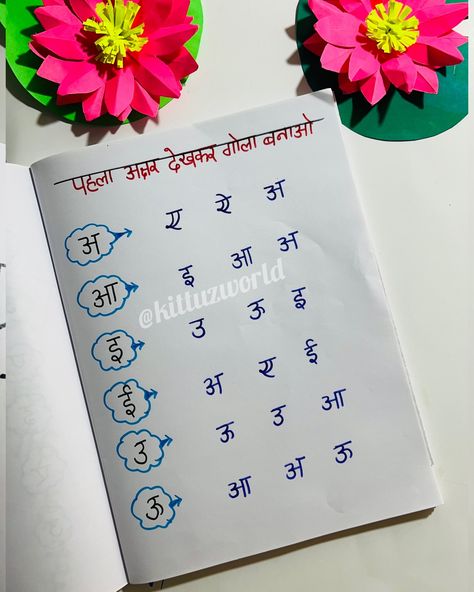 पहला अक्षर देखकर गोला बनाओ
अ ए ऐ अ
आ इ आ अ
@kittuzworld
इ उ ऊ इ
ई अ ए ई
उ ऊ उ आ
ऊ आ अ ऊ